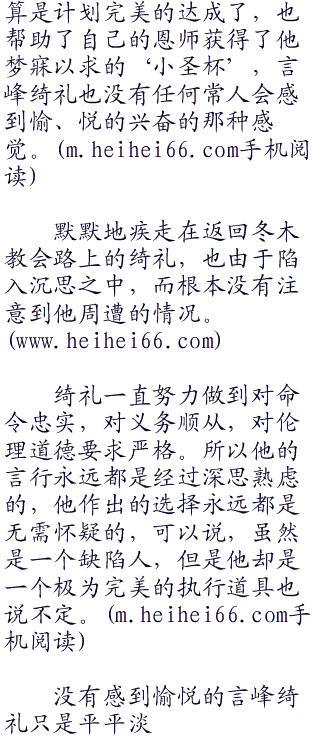 算是计划完美的达成了，也
帮助了自己的恩师获得了他
梦寐以求的‘小圣杯’，言
峰绮礼也没有任何常人会感
到愉、悦的兴奋的那种感
觉。(m.heihei66.com手机阅
读)
默默地疾走在返回冬木
教会路上的绮礼，也由于陷
入沉思之中，而根本没有注
意到他周遭的情况。
(www.heihei66.com)
绮礼一直努力做到对命
令忠实，对义务顺从，对伦
理道德要求严格。所以他的
言行永远都是经过深思熟虑
的，他作出的选择永远都是
无需怀疑的，可以说，虽然
是一个缺陷人，但是他却是
一个极为完美的执行道具也
说不定。(m.heihei66.com手
机阅读)
没有感到愉悦的言峰绮
礼只是平平淡